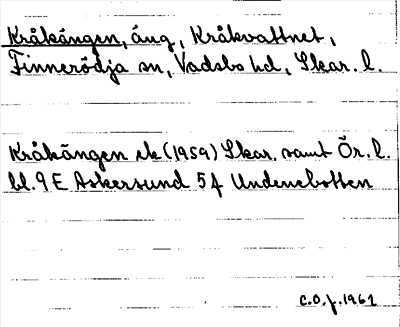 Kråkängen, äng, Kråkvattnet,
Finnerödja sn, Vadsbo hd, Skar. l.
Kråkängen ek (1959) Skar. samt Ör. l.
bl. 9 E Askersund 5 f Undenebotten
C.O.f. 1961